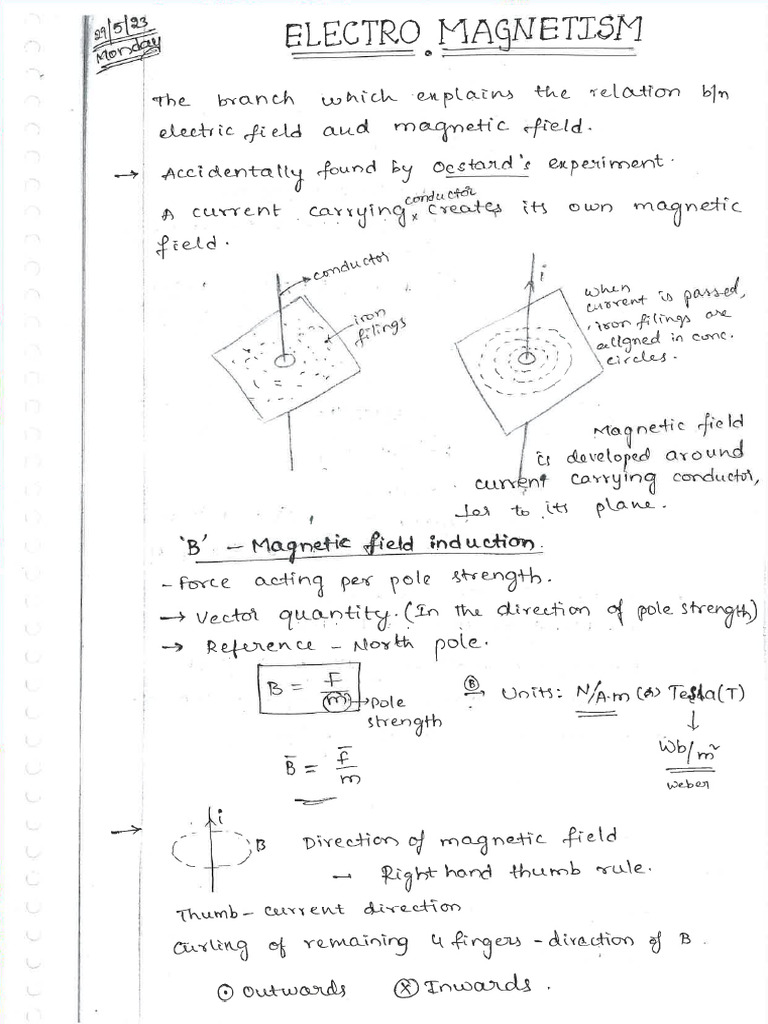 29/5/23
Monday
ELECTRO MAGNETISM
The branch which explains the relation b/n
electric field and magnetic field.
→ Accidentally found by Ocstard's experiment.
conductor
A current carrying creates its own magnetic
field.
conductor
iron
filings
i
when
current is passed,
iron filings are
alligned in conc.
circles.
Magnetic field
is developed around
current carrying conductor,
to its plane.
'B' - Magnetic field induction.
- Force acting per pole strength.
→ Vector quantity. (In the direction of pole strength)
→ Reference - North pole.
B = F/m → Pole
strength
B → Units: N/A.m (or) Tesla (T)
↓
Wb/m²
weber
B̄ = F̄/m
→ i
B
Direction of magnetic field
- Right hand thumb rule.
Thumb - current direction
Curling of remaining 4 fingers - direction of B.
⊙ Outwards ⊗ Inwards.